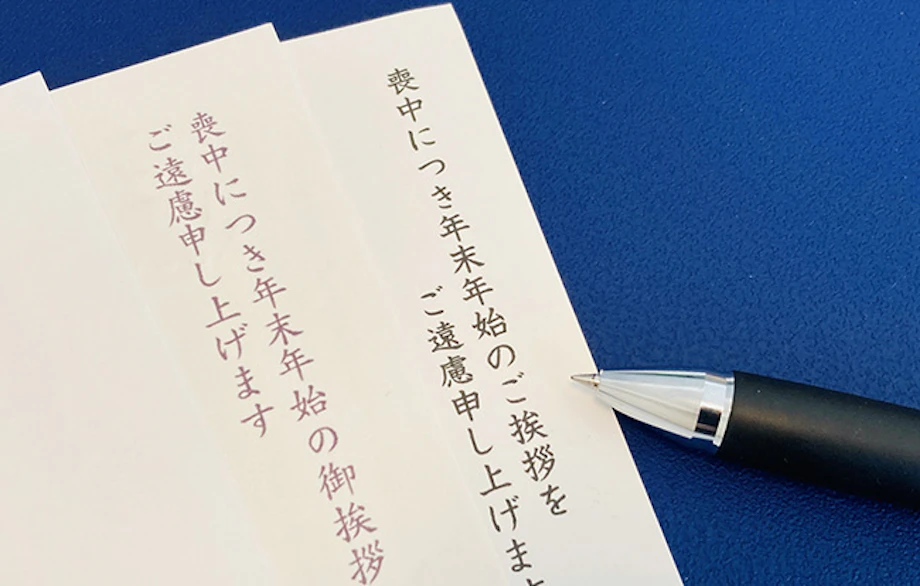 喪中につき年末年始のご挨拶を
ご遠慮申し上げます
喪中につき年末年始の御挨拶
ご遠慮申し上げます